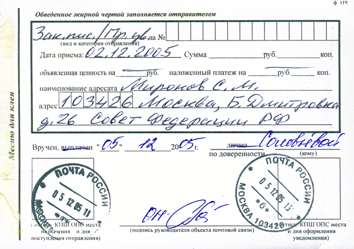 ф 119
Обведенное жирной чертой заполняется отправителем
Зак.пис./Пр. ув. на №
(вид и категория отправления)
Дата приема: 02.12.2005 Сумма руб. коп.
объявленная ценность на руб. наложенный платеж на руб.
наименование адресата Миронов С. М.
адрес 103426 Москва, Б. Дмитровка
д. 26 Совет Федерации РФ
Место для клея
Вручен, 05 - 12 2005г. лично Соловьевой
по доверенности (кому)
ПОЧТА РОССИИ
МОСКВА
05 12 05 11
ПОЧТА РОССИИ
МОСКВА 103426
05 12 05
КПШ ОПС места
поступления отправления
(подпись руководителя объекта почтовой связи)
КПШ ОПС места
оформления
уведомления)